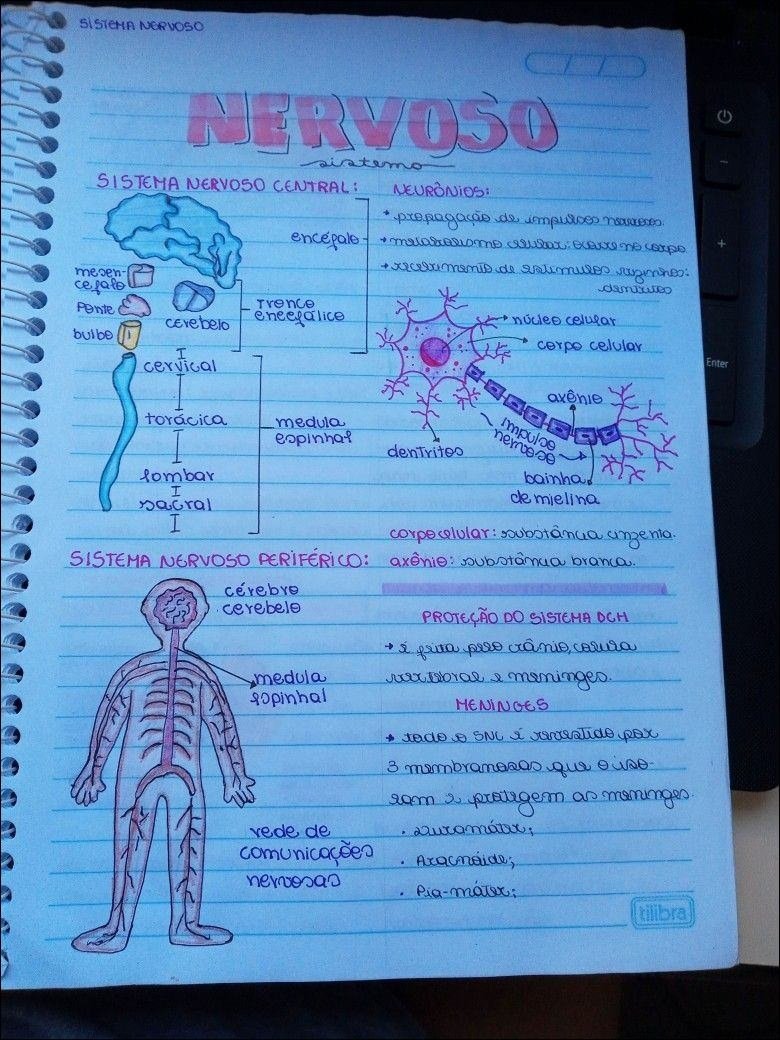 SISTEMA NERVOSO
NERVOSO
sistema
SISTEMA NERVOSO CENTRAL:
encéfalo
mesen-
cefalo
Ponte
bulbo
cerebelo
Tronco
encefálico
cervical
torácica
lombar
sacral
medula
espinhal
NEURÔNIOS:
• propagação de impulsos nervosos.
• metabolismo celular: ocorre no corpo
• recebimento de estimulos vizinhos:
dentritos
núcleo celular
corpo celular
axônio
impulso
nervoso
dentritos
bainha
de mielina
corpo celular: substância cinzenta.
axônio: substância branca.
SISTEMA NERVOSO PERIFÉRICO:
cérebro
cerebelo
medula
espinhal
rede de
comunicações
nervosas
PROTEÇÃO DO SISTEMA
• é feita pelo crânio, coluna
vertebral e meninges.
MENINGES
• todo o SNC é revestido por
3 membranosas que o iso-
lam e protegem as meninges.
• Duramáter;
• Aracnóide;
• Pia-máter;
tilibra
Enter